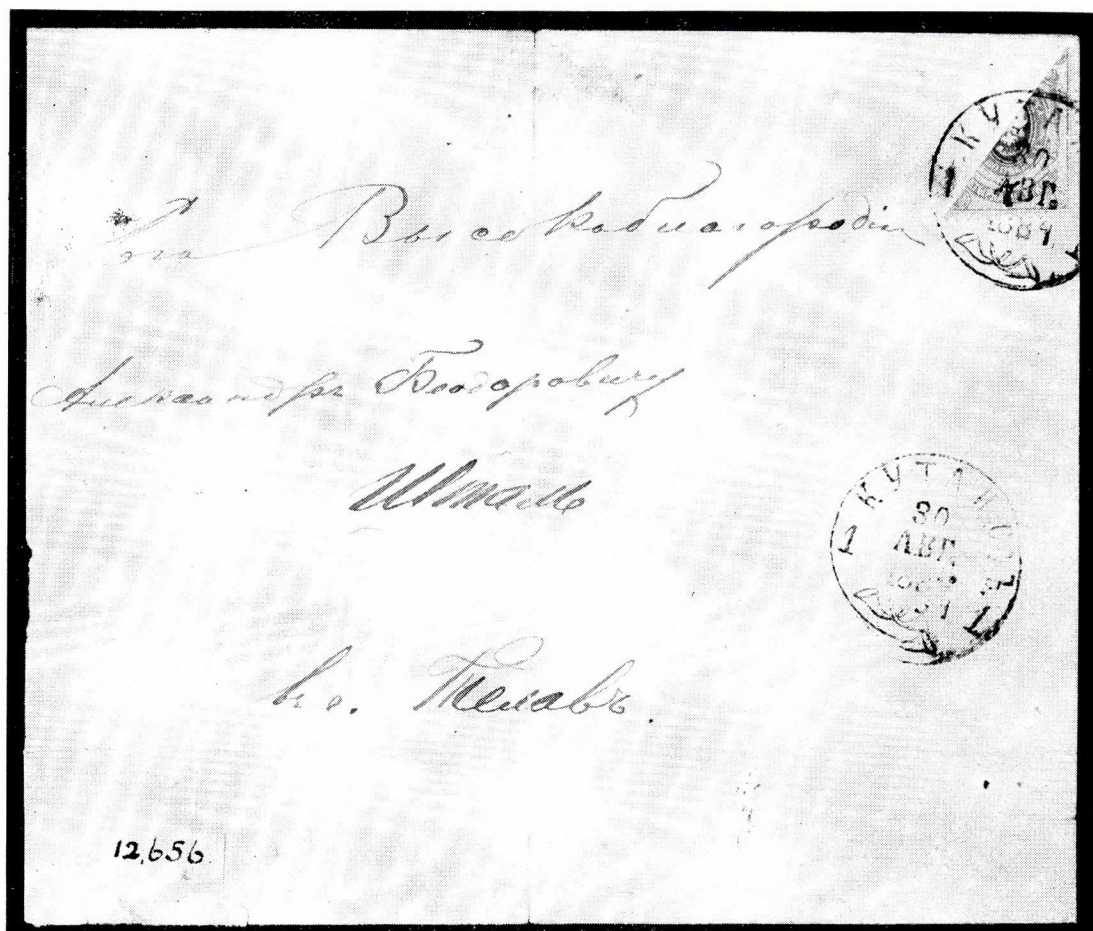 Высокоблагородiю
Александръ Беодоровичу
Шталь
въ г. Телавъ.
КУТА
30
АВГ.
1884
1
КУТАИСЪ
30
АВГ.
1884
1 1
12,656